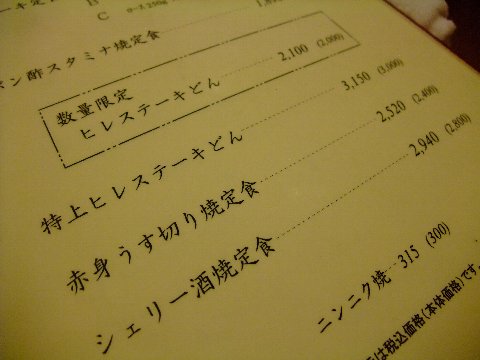 C ロース 250g
ポン酢スタミナ焼定食
数量限定
ヒレステーキどん 2,100 (2,000)
特上ヒレステーキどん 3,150 (3,000)
赤身うす切り焼定食 2,520 (2,400)
シェリー酒焼定食 2,940 (2,800)
ニンニク焼 315 (300)
は税込価格(本体価格)です。